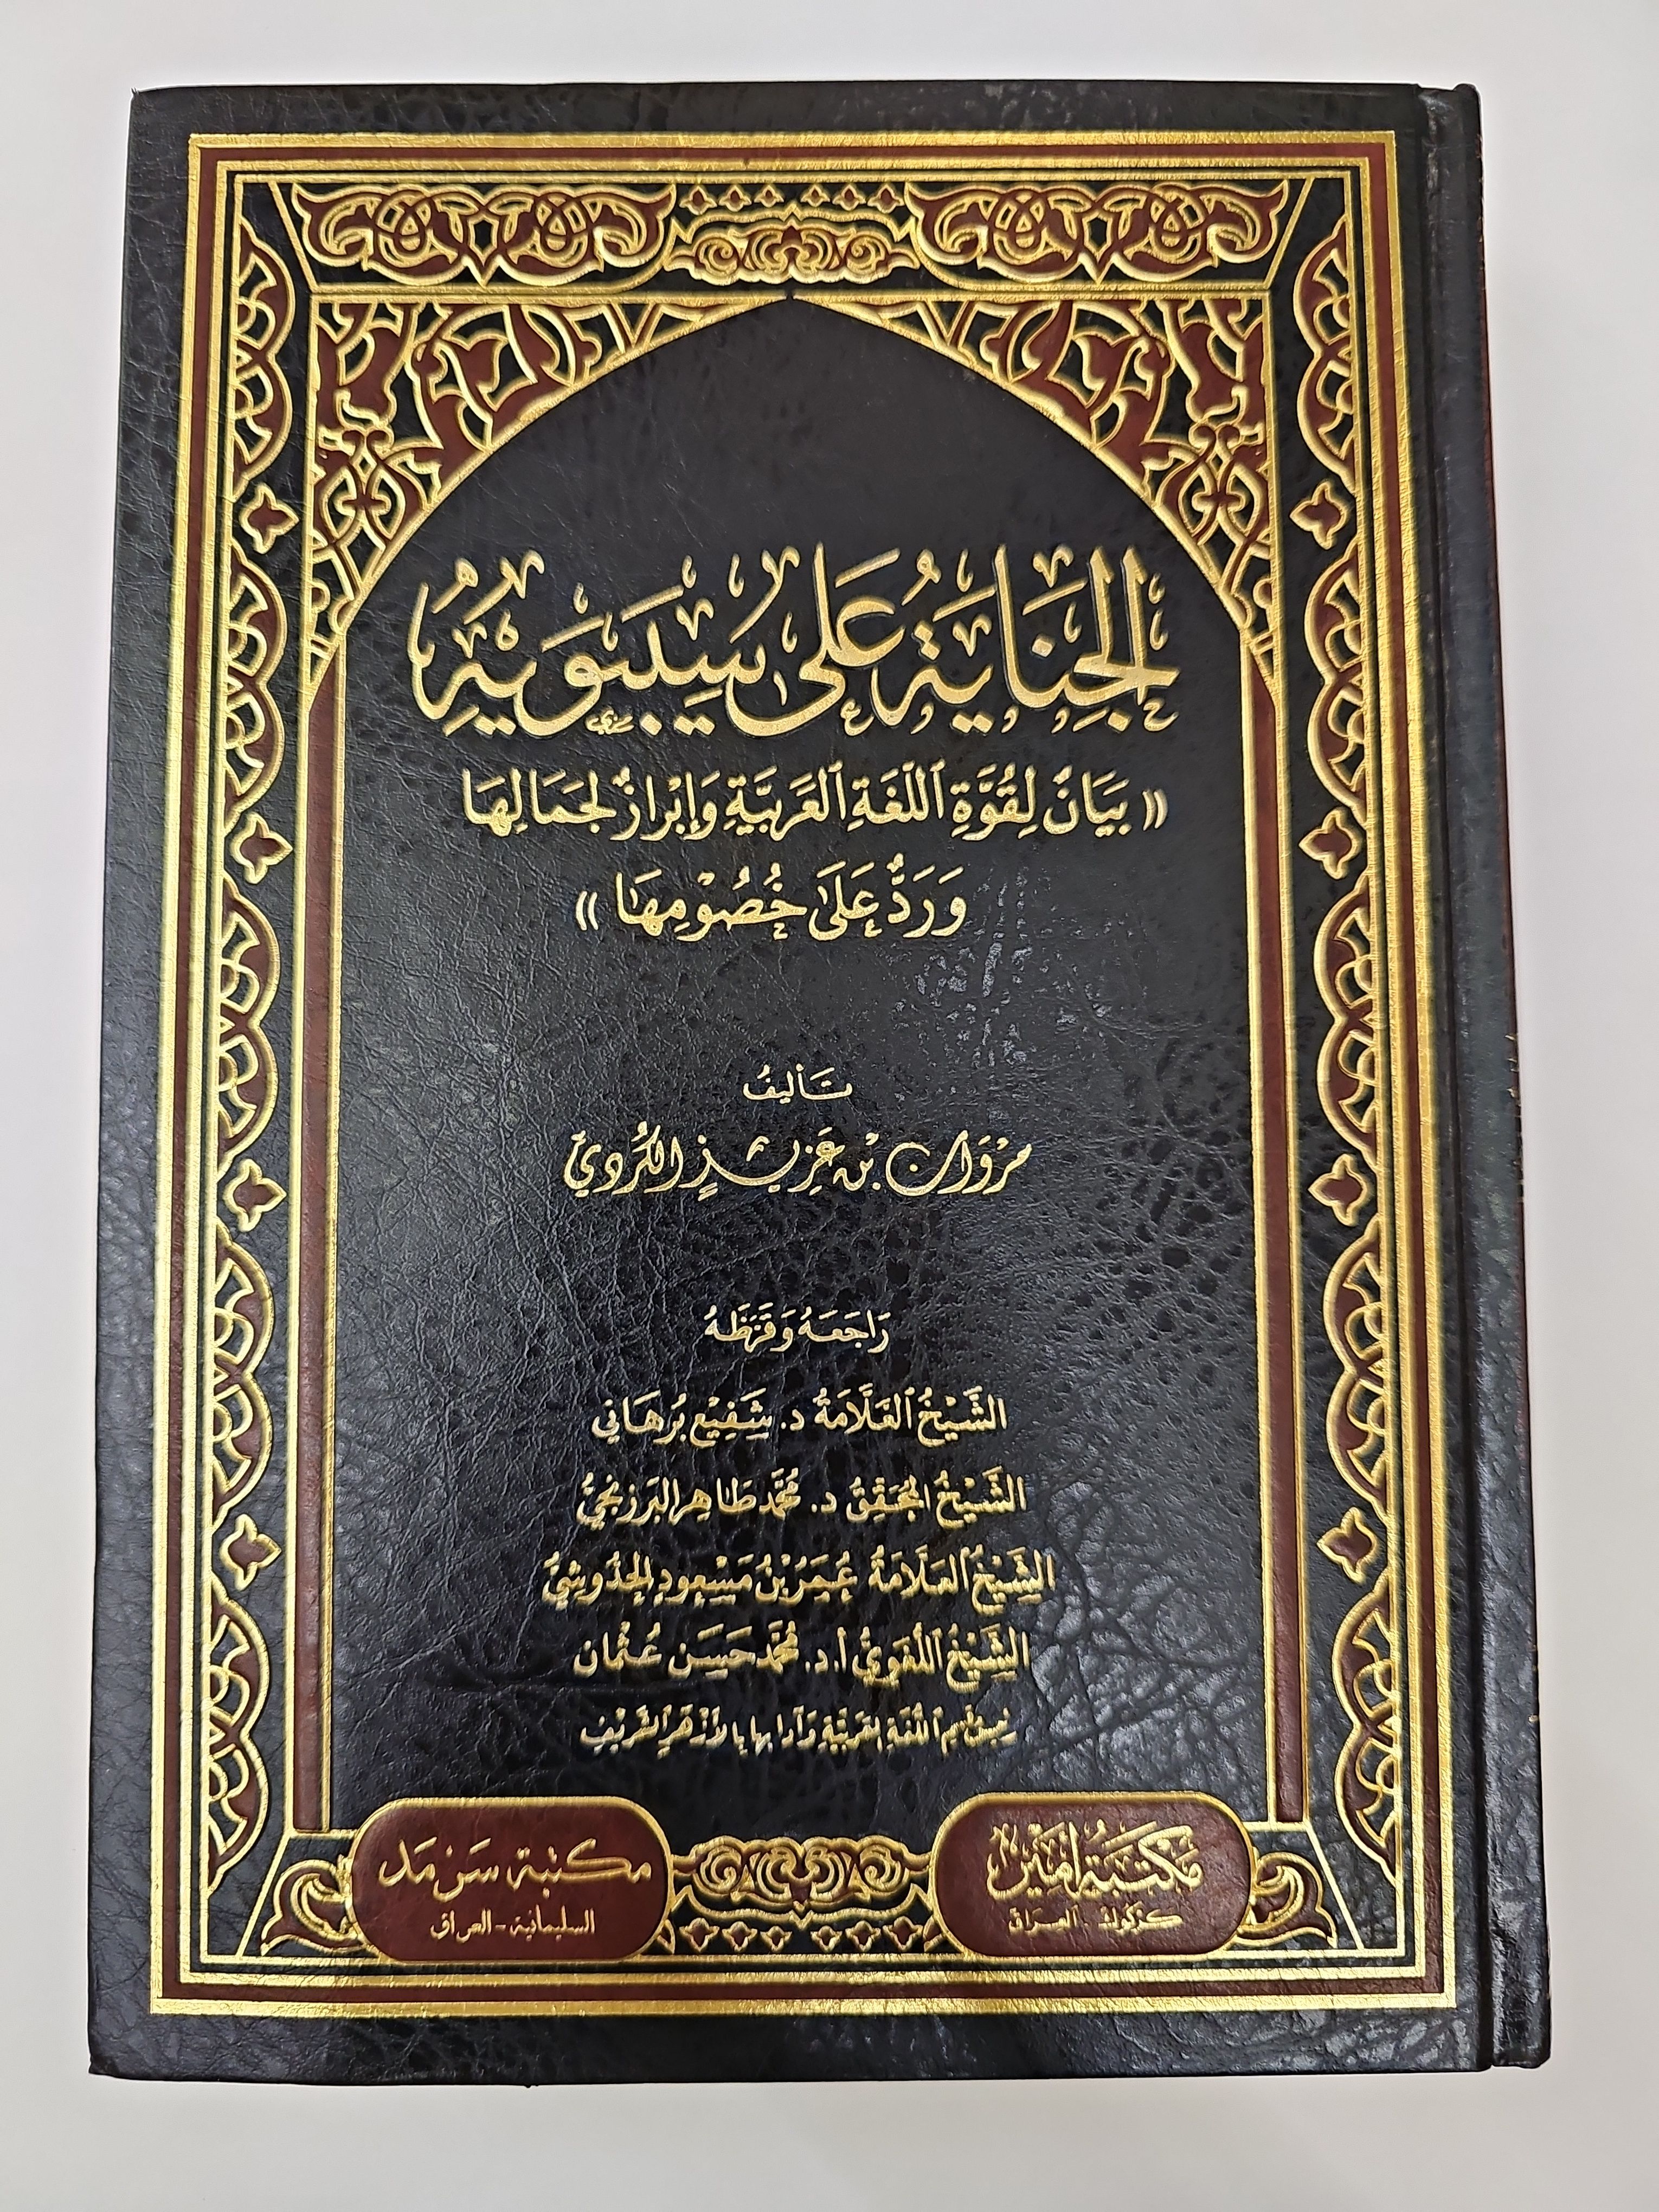 الجِنَايَةُ عَلَى سِيبَوَيْهِ
(( بَيَانٌ لِقُوَّةِ اللُّغَةِ العَرَبِيَّةِ وَإِبْرَازٌ لِجَمَالِهَا
وَرَدٌّ عَلَى خُصُوْمِهَا ))
تَأْلِيفُ
مَرْوَان بْن عَزِيز الكُرْدِيّ
رَاجَعَهُ وَقَرَّظَهُ
الشَّيْخُ العَلَّامَةُ د. شَفِيْع بُرْهَانِي
الشَّيْخُ المُحَقِّقُ د. مُحَمَّد طَاهِر البَرْزَنْجِيُّ
الشَّيْخُ العَلَّامَةُ عُمَرُ بْنُ مَسْعُودٍ الحَدُوشِيُّ
الشَّيْخُ اللُّغَوِيُّ أ.د. مُحَمَّد حَسَن عُثْمَان
اللُّغَةِ العَرَبِيَّةِ وَآدَابِهَا بِالأَزْهَرِ الشَّرِيْفِ
مَكْتَبَةُ أَمِيْر
كركوك - العراق
مكتبة سَرْمَد
السليمانية - العراق